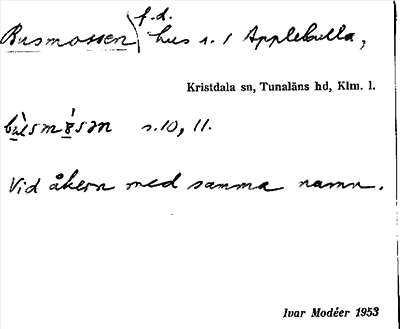 Busmossen f.d. hus s. 1 Applekulla,
Kristdala sn, Tunaläns hd, Klm. l.
s.10, 11.
Vid åkern med samma namn.
Ivar Modéer 1953